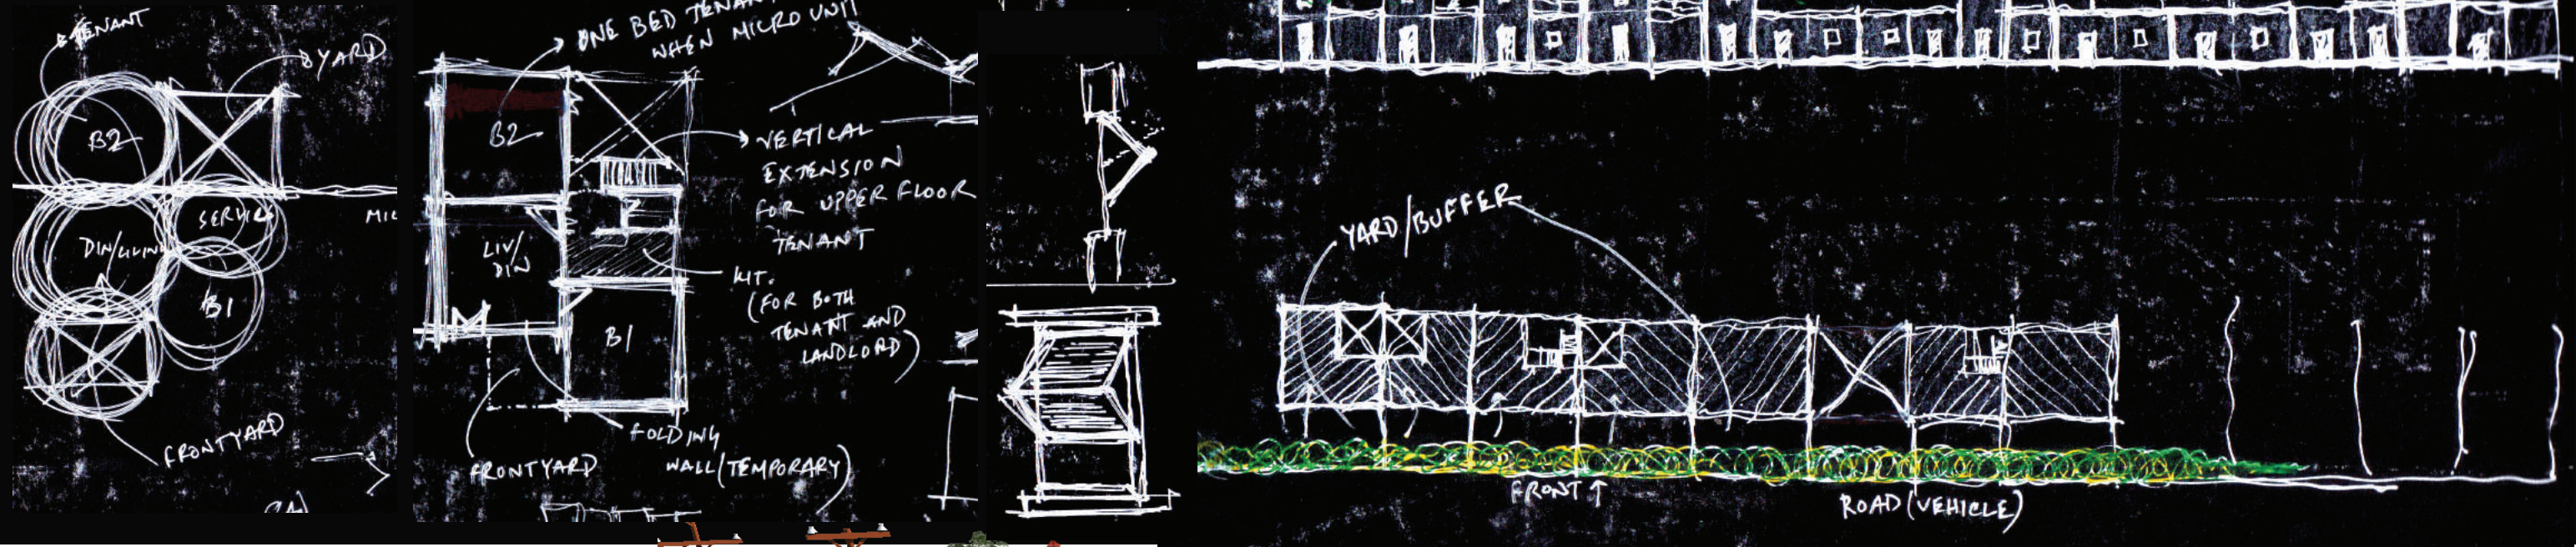 TENANT
YARD
B2
SERVICE
DIN/LIVING
B1
FRONTYARD
ONE BED TENANT
WHEN MICRO UNIT
B2
VERTICAL
EXTENSION
FOR UPPER FLOOR
TENANT
LIV/
DIN
KIT.
(FOR BOTH
TENANT AND
LANDLORD)
B1
FOLDING
WALL (TEMPORARY)
FRONTYARD
YARD/BUFFER
FRONT ↑
ROAD (VEHICLE)